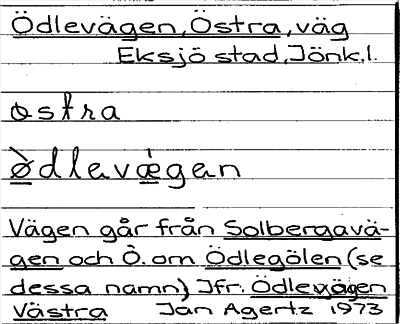 Ödlevägen, Östra, väg
Eksjö stad, Jönk.l.
ostra
ò̱dlavǽ̱gan
Vägen går från Solbergavä-
gen och Ö. om Ödlegölen (se
dessa namn) Jfr. Ödlevägen
Västra Jan Agertz 1973